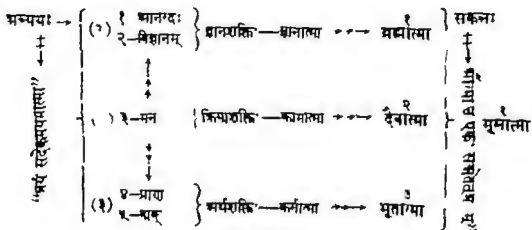 अव्ययः → (१) १ आनन्दः २-विज्ञानम् } ज्ञानशक्ति — ज्ञानात्मा → ब्रह्मात्मा १ सकलः
"त्रयं सदेकमयमात्मा" ( ) ३-मन { क्रियाशक्ति — कामात्मा → दैवात्मा २ भूमात्मा १
(३) ४-प्राण ५-वाक् } अर्थशक्ति — कर्मात्मा → भूतात्मा ३